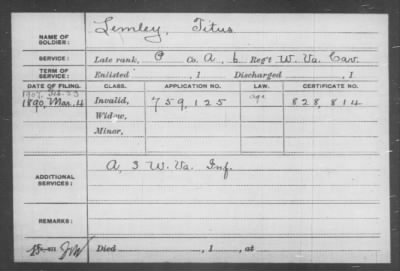 NAME OF SOLDIER: Lemley, Titus
SERVICE: Late rank, P Co. A, 6 Reg't W. Va. Cav.
TERM OF SERVICE: Enlisted , 1 Discharged , 1
DATE OF FILING. CLASS. APPLICATION NO. LAW. CERTIFICATE NO.
1907, Feb. 23 age
1890, Mar. 4 Invalid, 759,125 828,814
Widow,
Minor,
ADDITIONAL SERVICES: A, 3 W. Va. Inf.
REMARKS:
Died , 1 , at